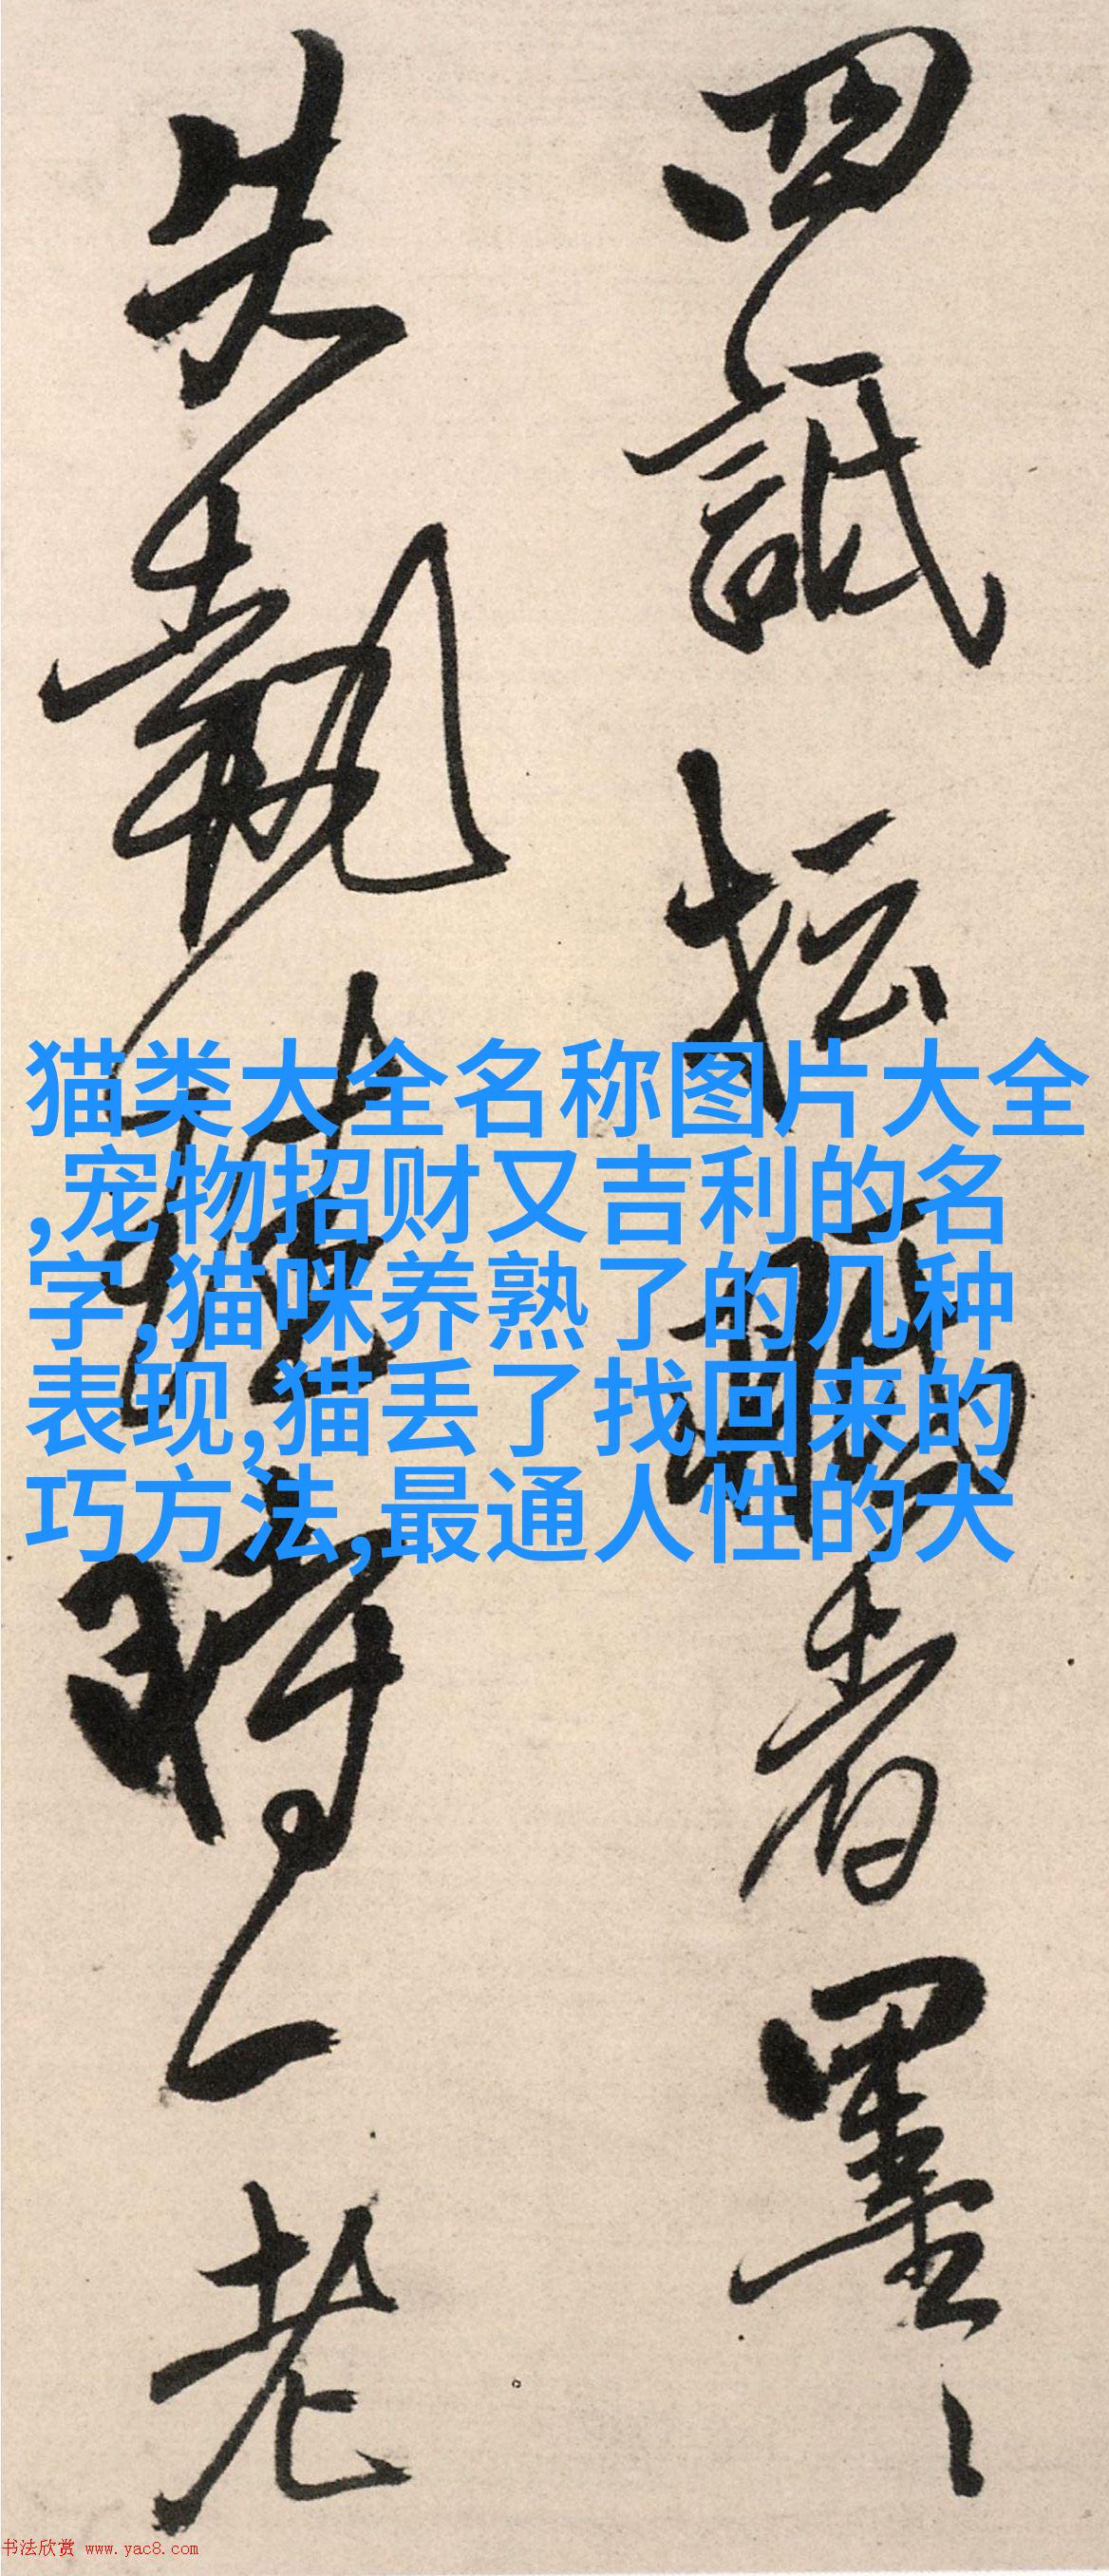 四詆坛
者墨
失執
時一老
猫类大全名称图片大全
,宠物招财又吉利的名
字,猫咪养熟了的几种
表现,猫丢了找回来的
巧方法,最通人性的犬
书法欣赏 www.yac8.com